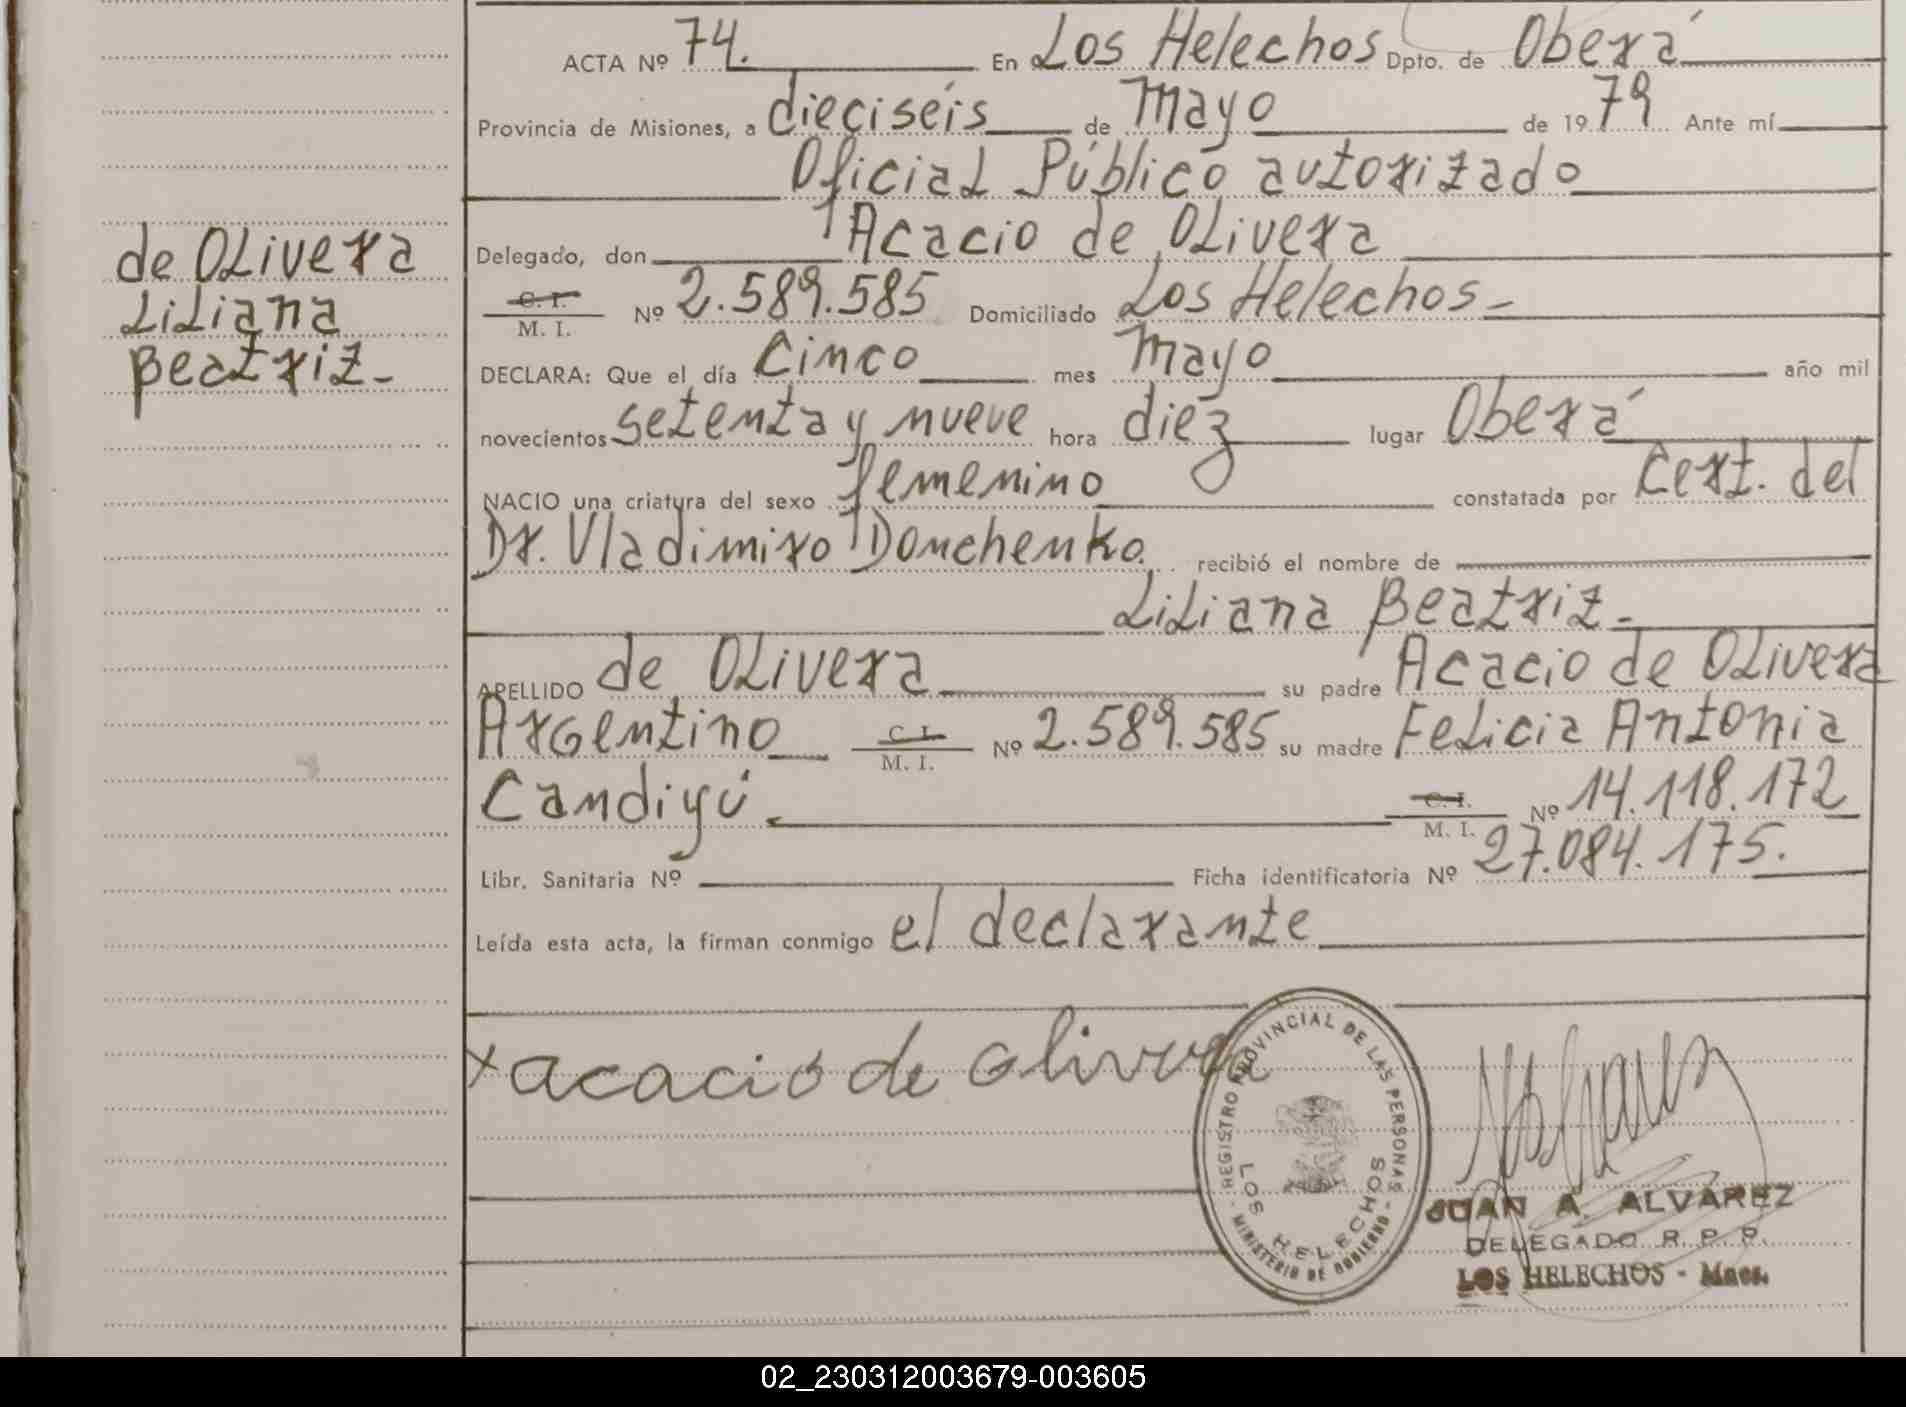 ACTA Nº 74. En Los Helechos Dpto. de Oberá
Provincia de Misiones, a dieciséis de Mayo de 1979 Ante mí
Oficial Público autorizado
Delegado, don Acacio de Olivera
C. I. / M. I. Nº 2.589.585 Domiciliado Los Helechos -
DECLARA: Que el día Cinco mes Mayo año mil
novecientos setenta y nueve hora diez lugar Oberá
NACIO una criatura del sexo femenino constatada por Cert. del
Dr. Vladimiro Donchenko. recibió el nombre de
Liliana Beatriz -
APELLIDO de Olivera su padre Acacio de Olivera
Argentino C. I. / M. I. Nº 2.589.585 su madre Felicia Antonia
Candiyú. C. I. / M. I. Nº 14.118.172
Libr. Sanitaria Nº Ficha identificatoria Nº 27.084.175.
Leída esta acta, la firman conmigo el declarante
de Olivera
Liliana
Beatriz -
x acacio de olivera
REGISTRO PROVINCIAL DE LAS PERSONAS
LOS HELECHOS
- MINISTERIO DE GOBIERNO -
JUAN A. ALVAREZ
DELEGADO R. P. P.
LOS HELECHOS - Mnes.
02_230312003679-003605